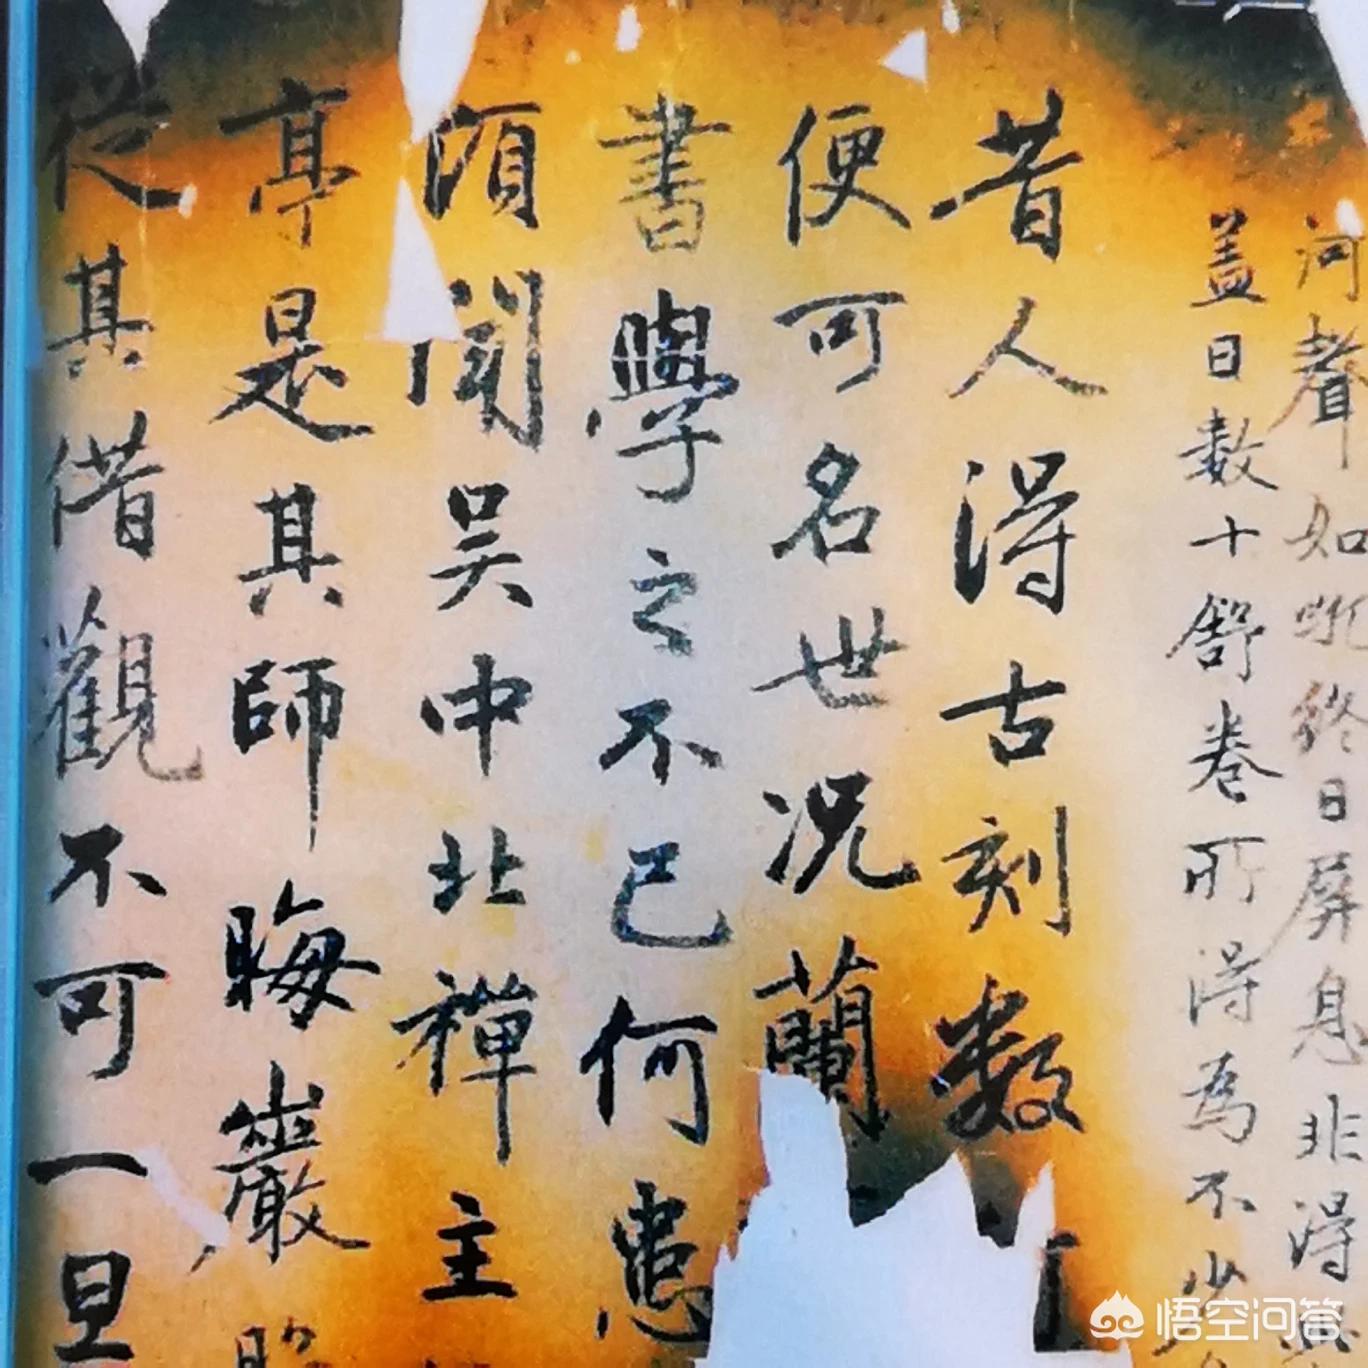 河聲如吼終日屏息非得
蓋日數十舒卷所得為不少
昔人得古刻數
便可名世况蘭
書學之不已何患
頃聞吴中北禪主
亭是其師晦巖
從其借觀不可一旦
悟空问答